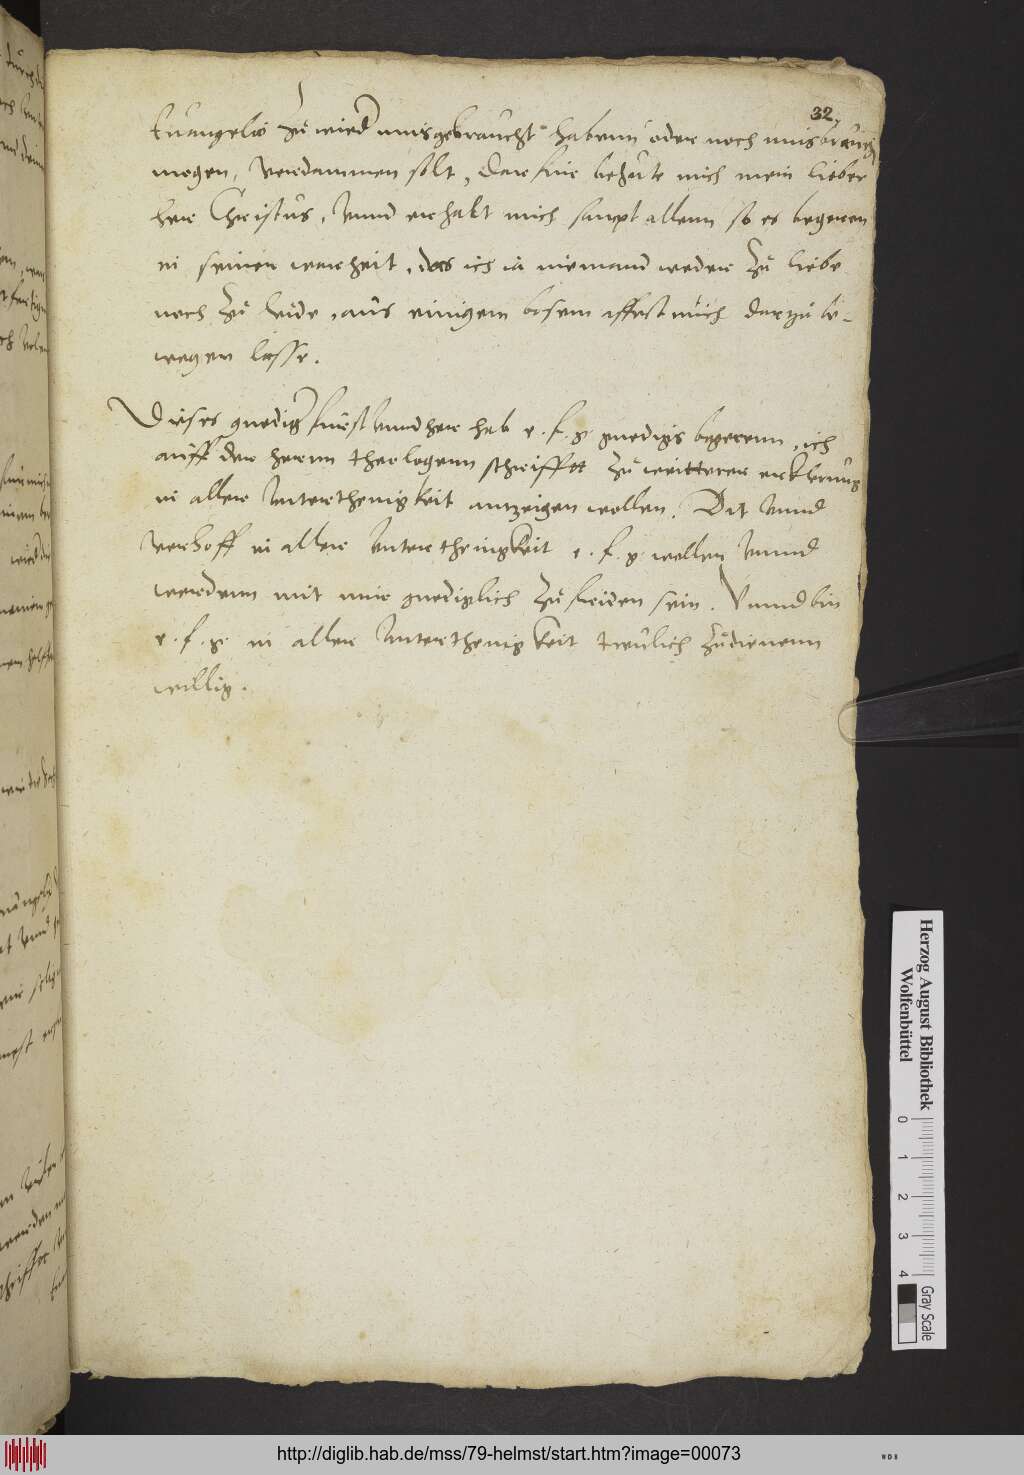 32
Euangelio zu wied misgebraucht habenn oder noch misbrauch
mogen, verdammen solt, Darfur behute mich mein lieber
herr Christus, Vnnd erhalt mich sampt allenn so es begeren
in seiner warheit, das ich ia niemand weder zu liebe
noch zu leide, aus einigem bosem affect mich darzu be-
wegen lasse.
Dieses gnedig furst vnnd herr hab e. f. g gnedigs begerenn, ich
auff der herrnn theologenn schrifft zu weitterer erklerung
in aller Vnterthenigkeit antzeigen wollen. Dit Vnnd
Verhoff in aller Vnterthenigkeit e. f. g wollen Vnnd
werdenn mit mir gnediglich zu friden sein. Vnnd bin
e. f. g. in aller Vnterthenigkeit treulich zudienenn
willig.
Herzog August Bibliothek
Wolfenbüttel
0 1 2 3 4
Gray Scale
http://diglib.hab.de/mss/79-helmst/start.htm?image=00073